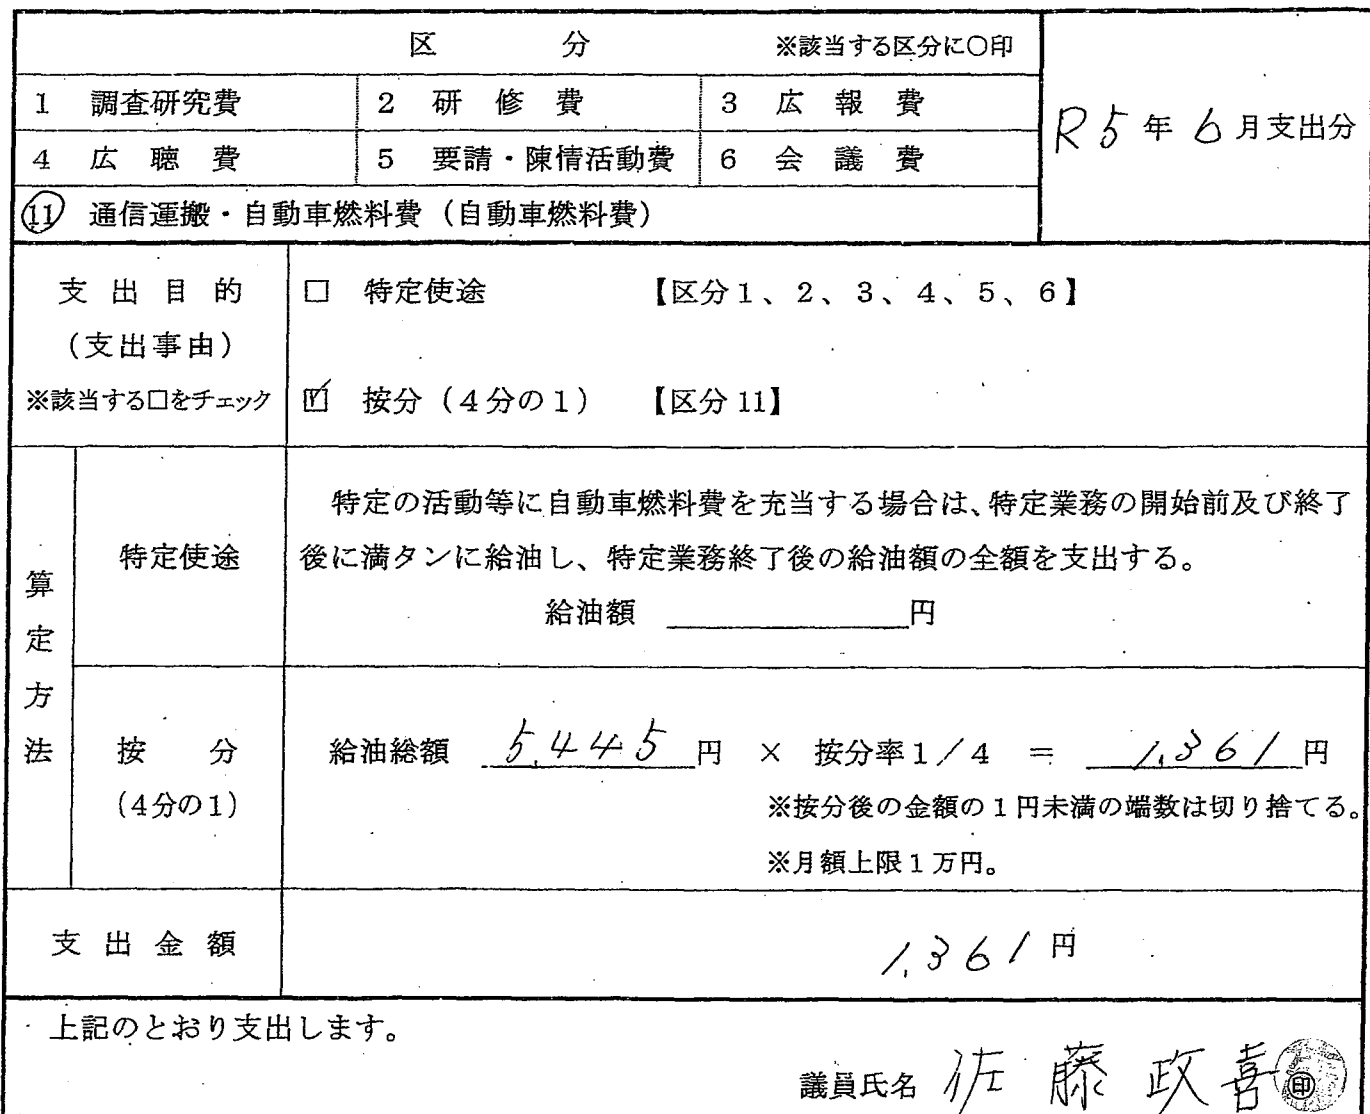 区 分 ※該当する区分に○印
1 調査研究費 2 研修費 3 広報費
4 広聴費 5 要請・陳情活動費 6 会議費
11 通信運搬・自動車燃料費（自動車燃料費）
R5年6月支出分
支出目的
（支出事由）
※該当する□をチェック
□ 特定使途 【区分1、2、3、4、5、6】
☑ 按分（4分の1） 【区分11】
算定方法
特定使途
特定の活動等に自動車燃料費を充当する場合は、特定業務の開始前及び終了
後に満タンに給油し、特定業務終了後の給油額の全額を支出する。
給油額 円
按分
（4分の1）
給油総額 5,445円 × 按分率1／4 ＝ 1,361円
※按分後の金額の1円未満の端数は切り捨てる。
※月額上限1万円。
支出金額 1,361円
上記のとおり支出します。
議員氏名 佐藤政喜 ㊞